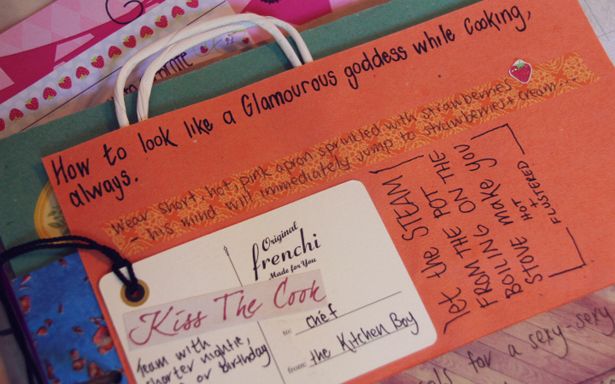 How to look like a Glamourous goddess while cooking,
always.
Wear short, hot, pink apron sprinkled with strawberries
- his mind will immediately jump to strawberries + cream.
let the STEAM
FROM THE POT
BOILING ON THE
STOVE make you
HOT
FLUSTERED
Original
frenchi
Made for You
Kiss The Cook
to: chef
from: the Kitchen Boy
Team with
shorter nightie,
or birthday
for a sexy-sexy